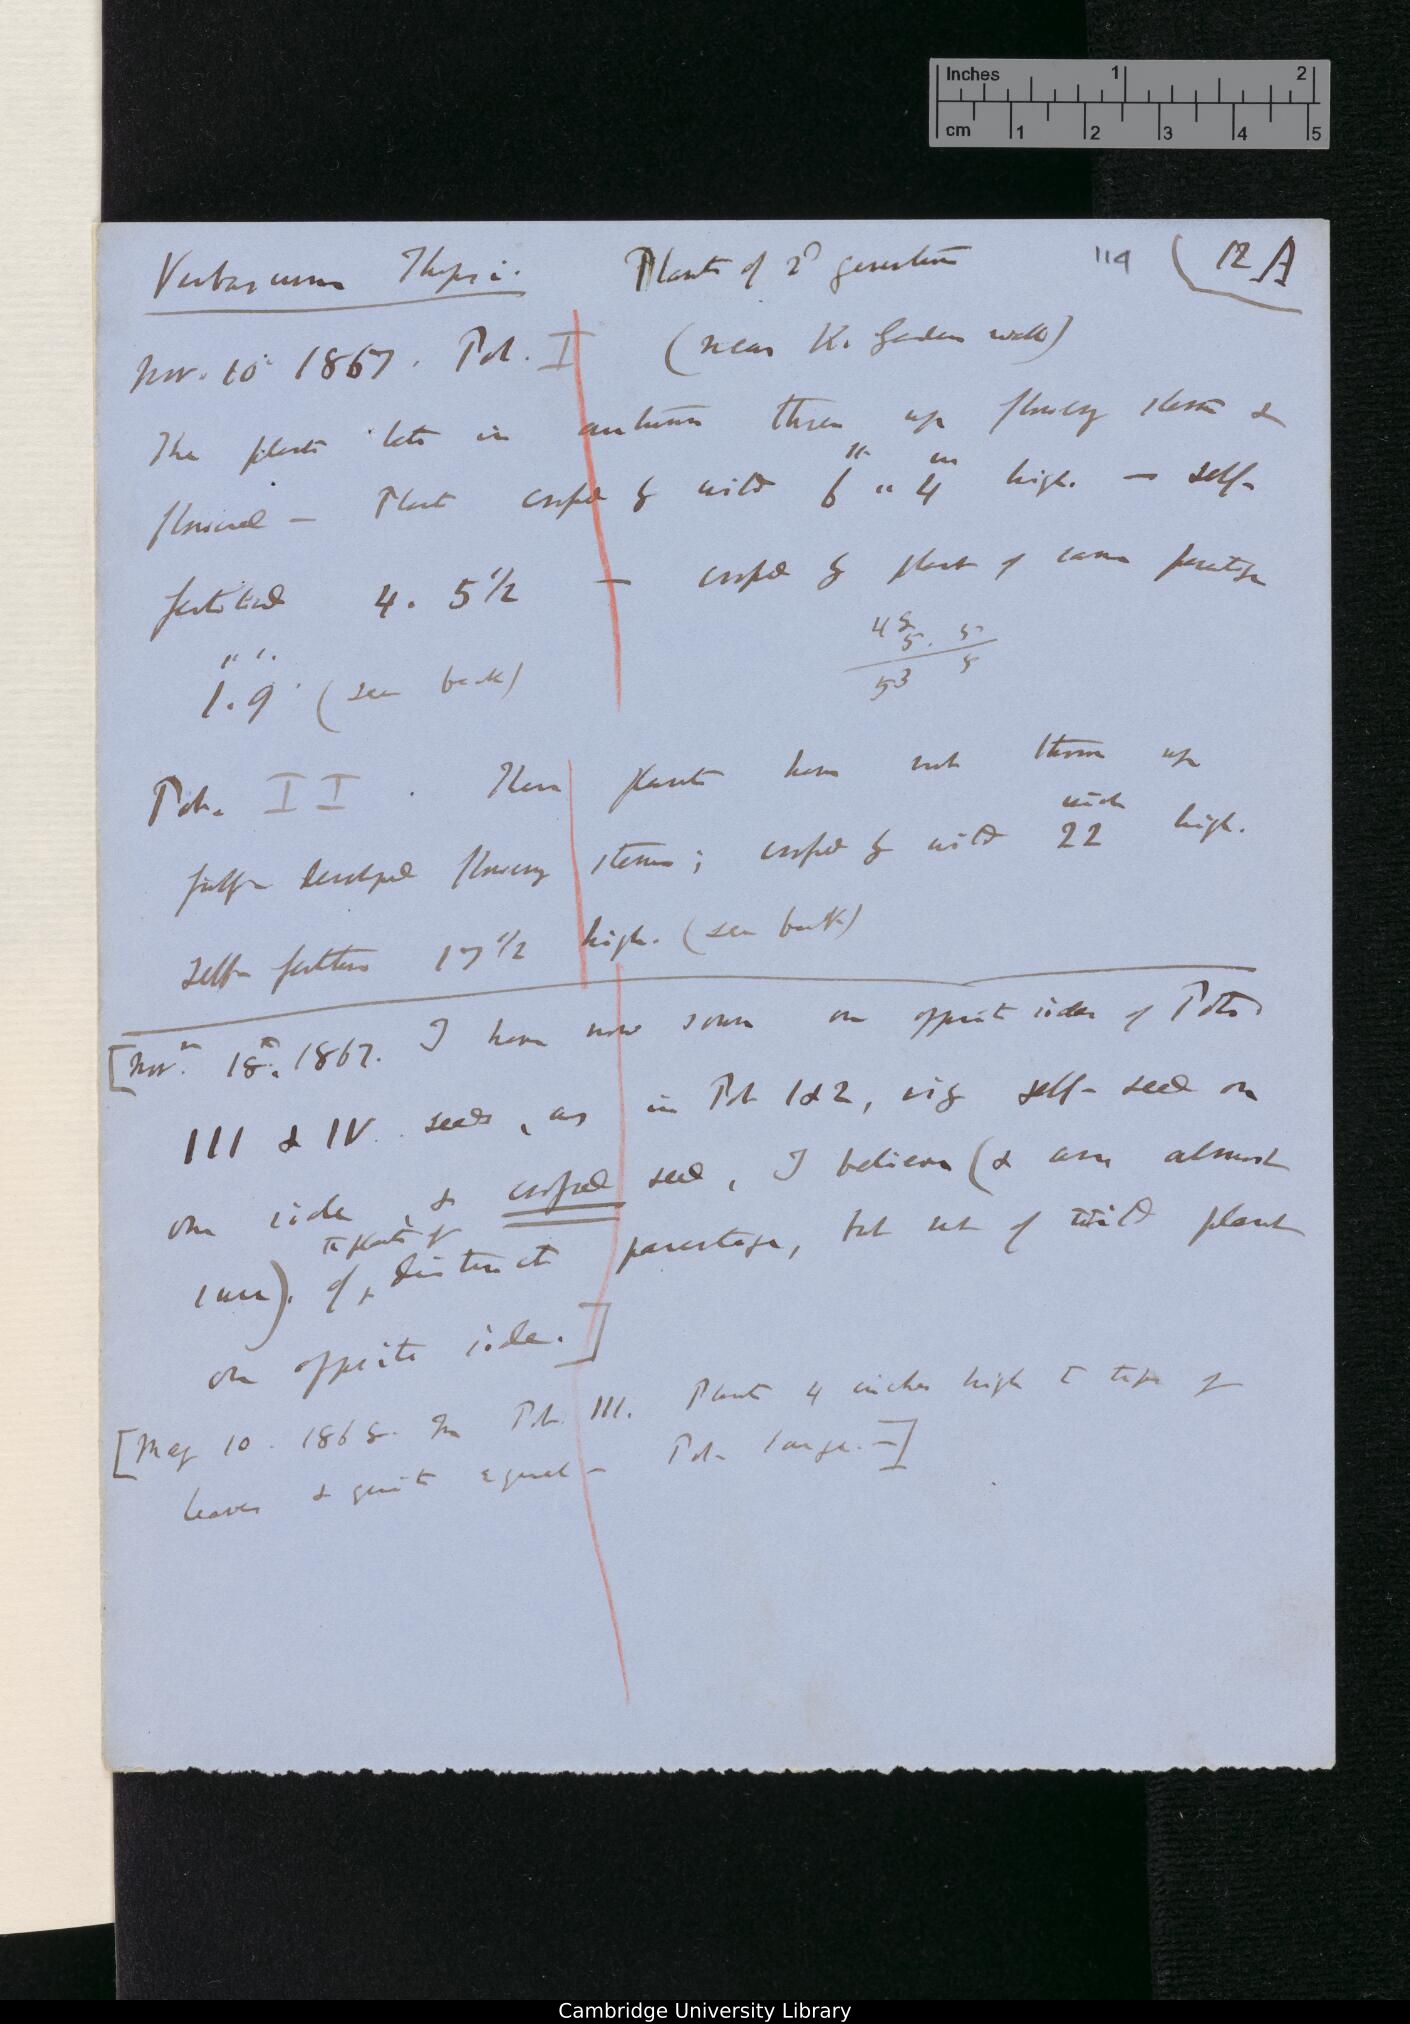 Inches 1 2
cm 1 2 3 4 5
Verbascum Thapsi. Plants of 2d generation 114 (12 A
Nov. 10 1867. Pot. I (near K. Garden walk)
The plants late in autumn threw up flowering stems &
flowered — Plant crossed by wild 6 " 4 high. — self-
fertilised 4. 5 1/2 — crossed by plant of same parentage
1. 9 (see back)
48
5. 5
53 5
Pot. II. These plants have not thrown up
inch
fully developed flowering stems; crossed by wild 22 high.
self-fertilised 17 1/2 high. (see back)
[Nov. 18th. 1867. I have now sown on opposite sides of Pots
III & IV seeds, as in Pot 1 & 2, viz self-seed on
one side, & crossed seed, I believe (& am almost
sure). of distinct parentage, but not of wild plant
on opposite side.]
[May 10. 1868. In Pot III. Plants 4 inches high to tips of
leaves & quite equal — Pot large. —]
Cambridge University Library